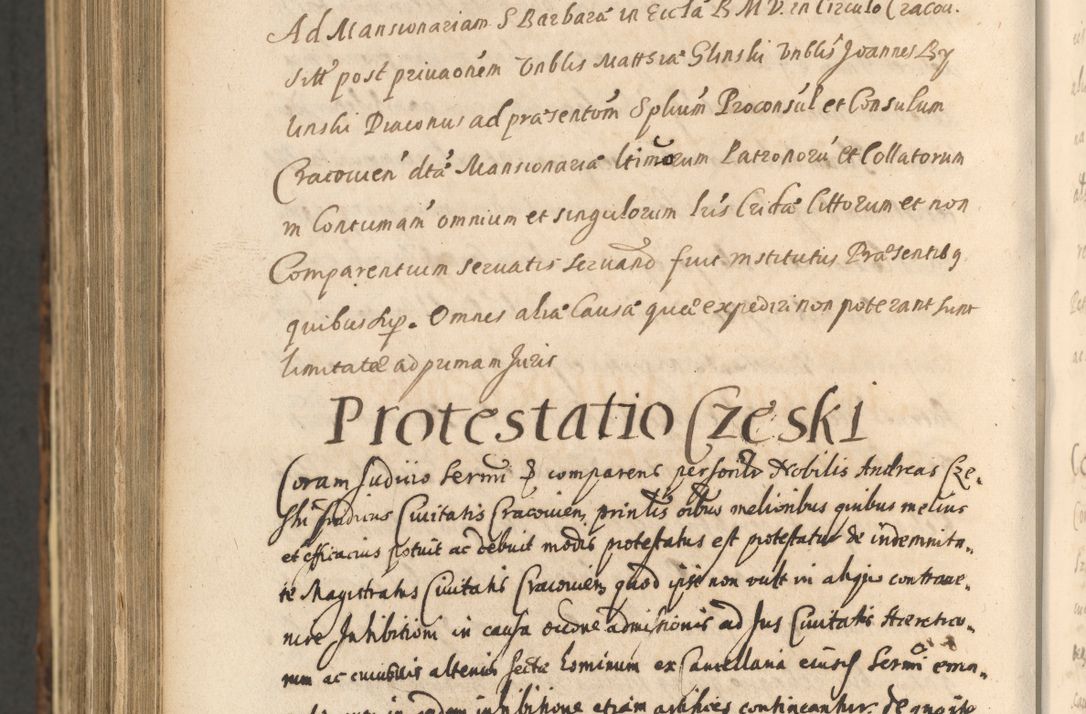 Ad Mansionariam S Barbaræ in Eccla B M V. in Circulo Cracou.
sitt post priuaonem Vnblis Matthiæ Glinski Vnblis Joannes By
linski Diaconus ad præsentom Splium Proconsul et Consulum
Cracouien dtæ Mansionariæ ltimorum Patronorū et Collatorum
in Contumam omnium et singulorum hiis Cridæ Cittorum et non
Comparentium seruatis seruand fuit institutus Præsentibq
quibus Omnes aliæ Causæ quæ expediri non poterant sunt
limitatæ ad primam Juris
Protestatio Czeski
Coram Judicio Sermi comparens personlr Nobilis Andreas Cze-
ski Ciuitatis Cracouien, oibus melioribus quibus melius
et efficacius potuit ac debuit modis protestatus est protestatur de indemnita-
te Magistratus Ciuitatis Cracouien, quod ipse non vult in aliquo contraue-
nire Inhibitioni in causa admissionis ad Jus Ciuitatis Hæretico-
rum ac cuiusuis alterius sectæ hominum ex Cancellaria eiusd Sermi ema-
inhibitione etiam artifices contineantur. de